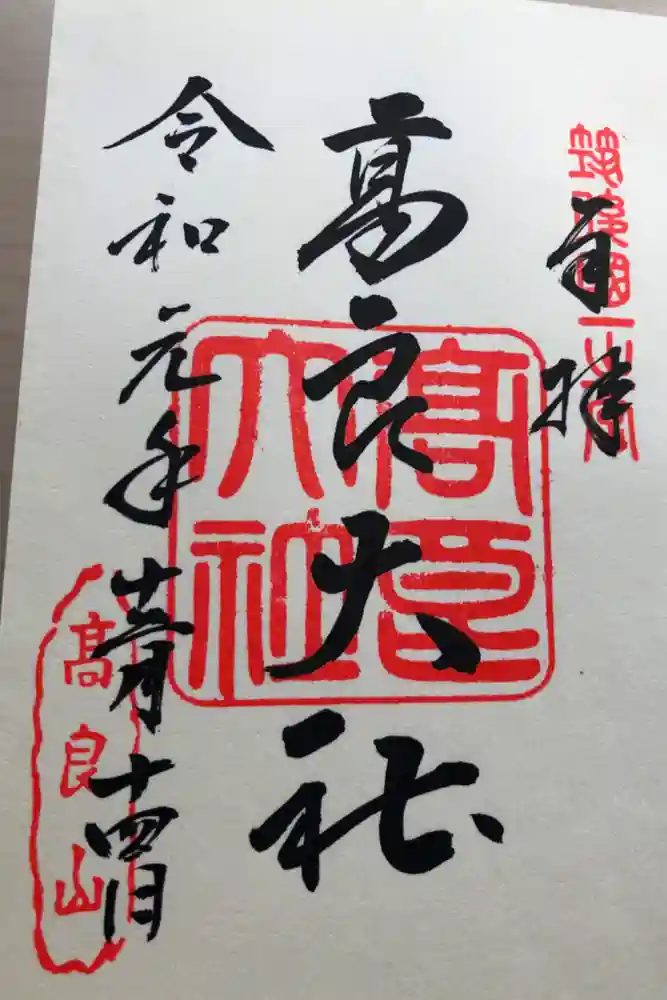 奉拝
筑後國一之宮
高良大社
高良大社
令和元年月十四日
高良山